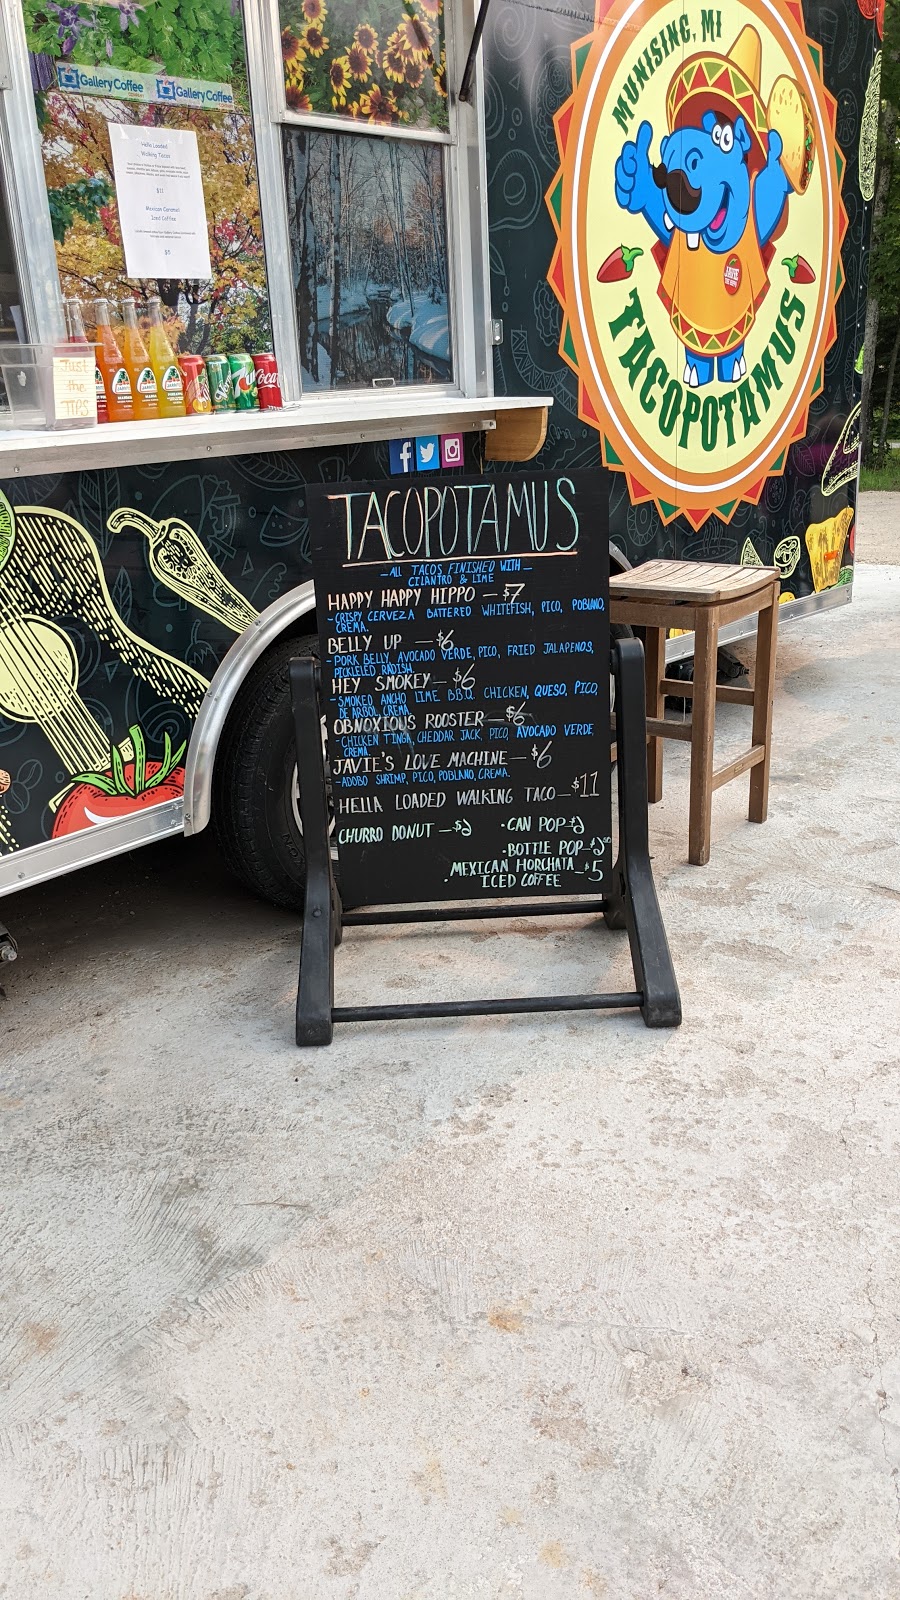 Gallery Coffee
COMPANY
Gallery Coffee
Hella Loaded
Walking Tacos
$11
Mexican Caramel
Iced Coffee
$5
Just
the
TIPS
JARRITOS
JARRITOS
JARRITOS
Coca
MUNISING, MI
TACOPOTAMUS
TACOPOTAMUS
- ALL TACOS FINISHED WITH -
CILANTRO & LIME
HAPPY HAPPY HIPPO - $7
- CRISPY CERVEZA BATTERED WHITEFISH, PICO, POBLANO,
CREMA.
BELLY UP - $6
- PORK BELLY, AVOCADO VERDE, PICO, FRIED JALAPENOS,
PICKLELED RADISH.
HEY SMOKEY - $6
- SMOKED ANCHO LIME B.B.Q. CHICKEN, QUESO, PICO,
DE ARBOL CREMA.
OBNOXIOUS ROOSTER - $6
- CHICKEN TINGA, CHEDDAR JACK, PICO, AVOCADO VERDE,
CREMA.
JAVIE'S LOVE MACHINE - $6
- ADOBO SHRIMP, PICO, POBLANO, CREMA.
HELLA LOADED WALKING TACO - $11
CHURRO DONUT - $2
• CAN POP - $2
• BOTTLE POP - $2.50
• MEXICAN HORCHATA - $5
ICED COFFEE